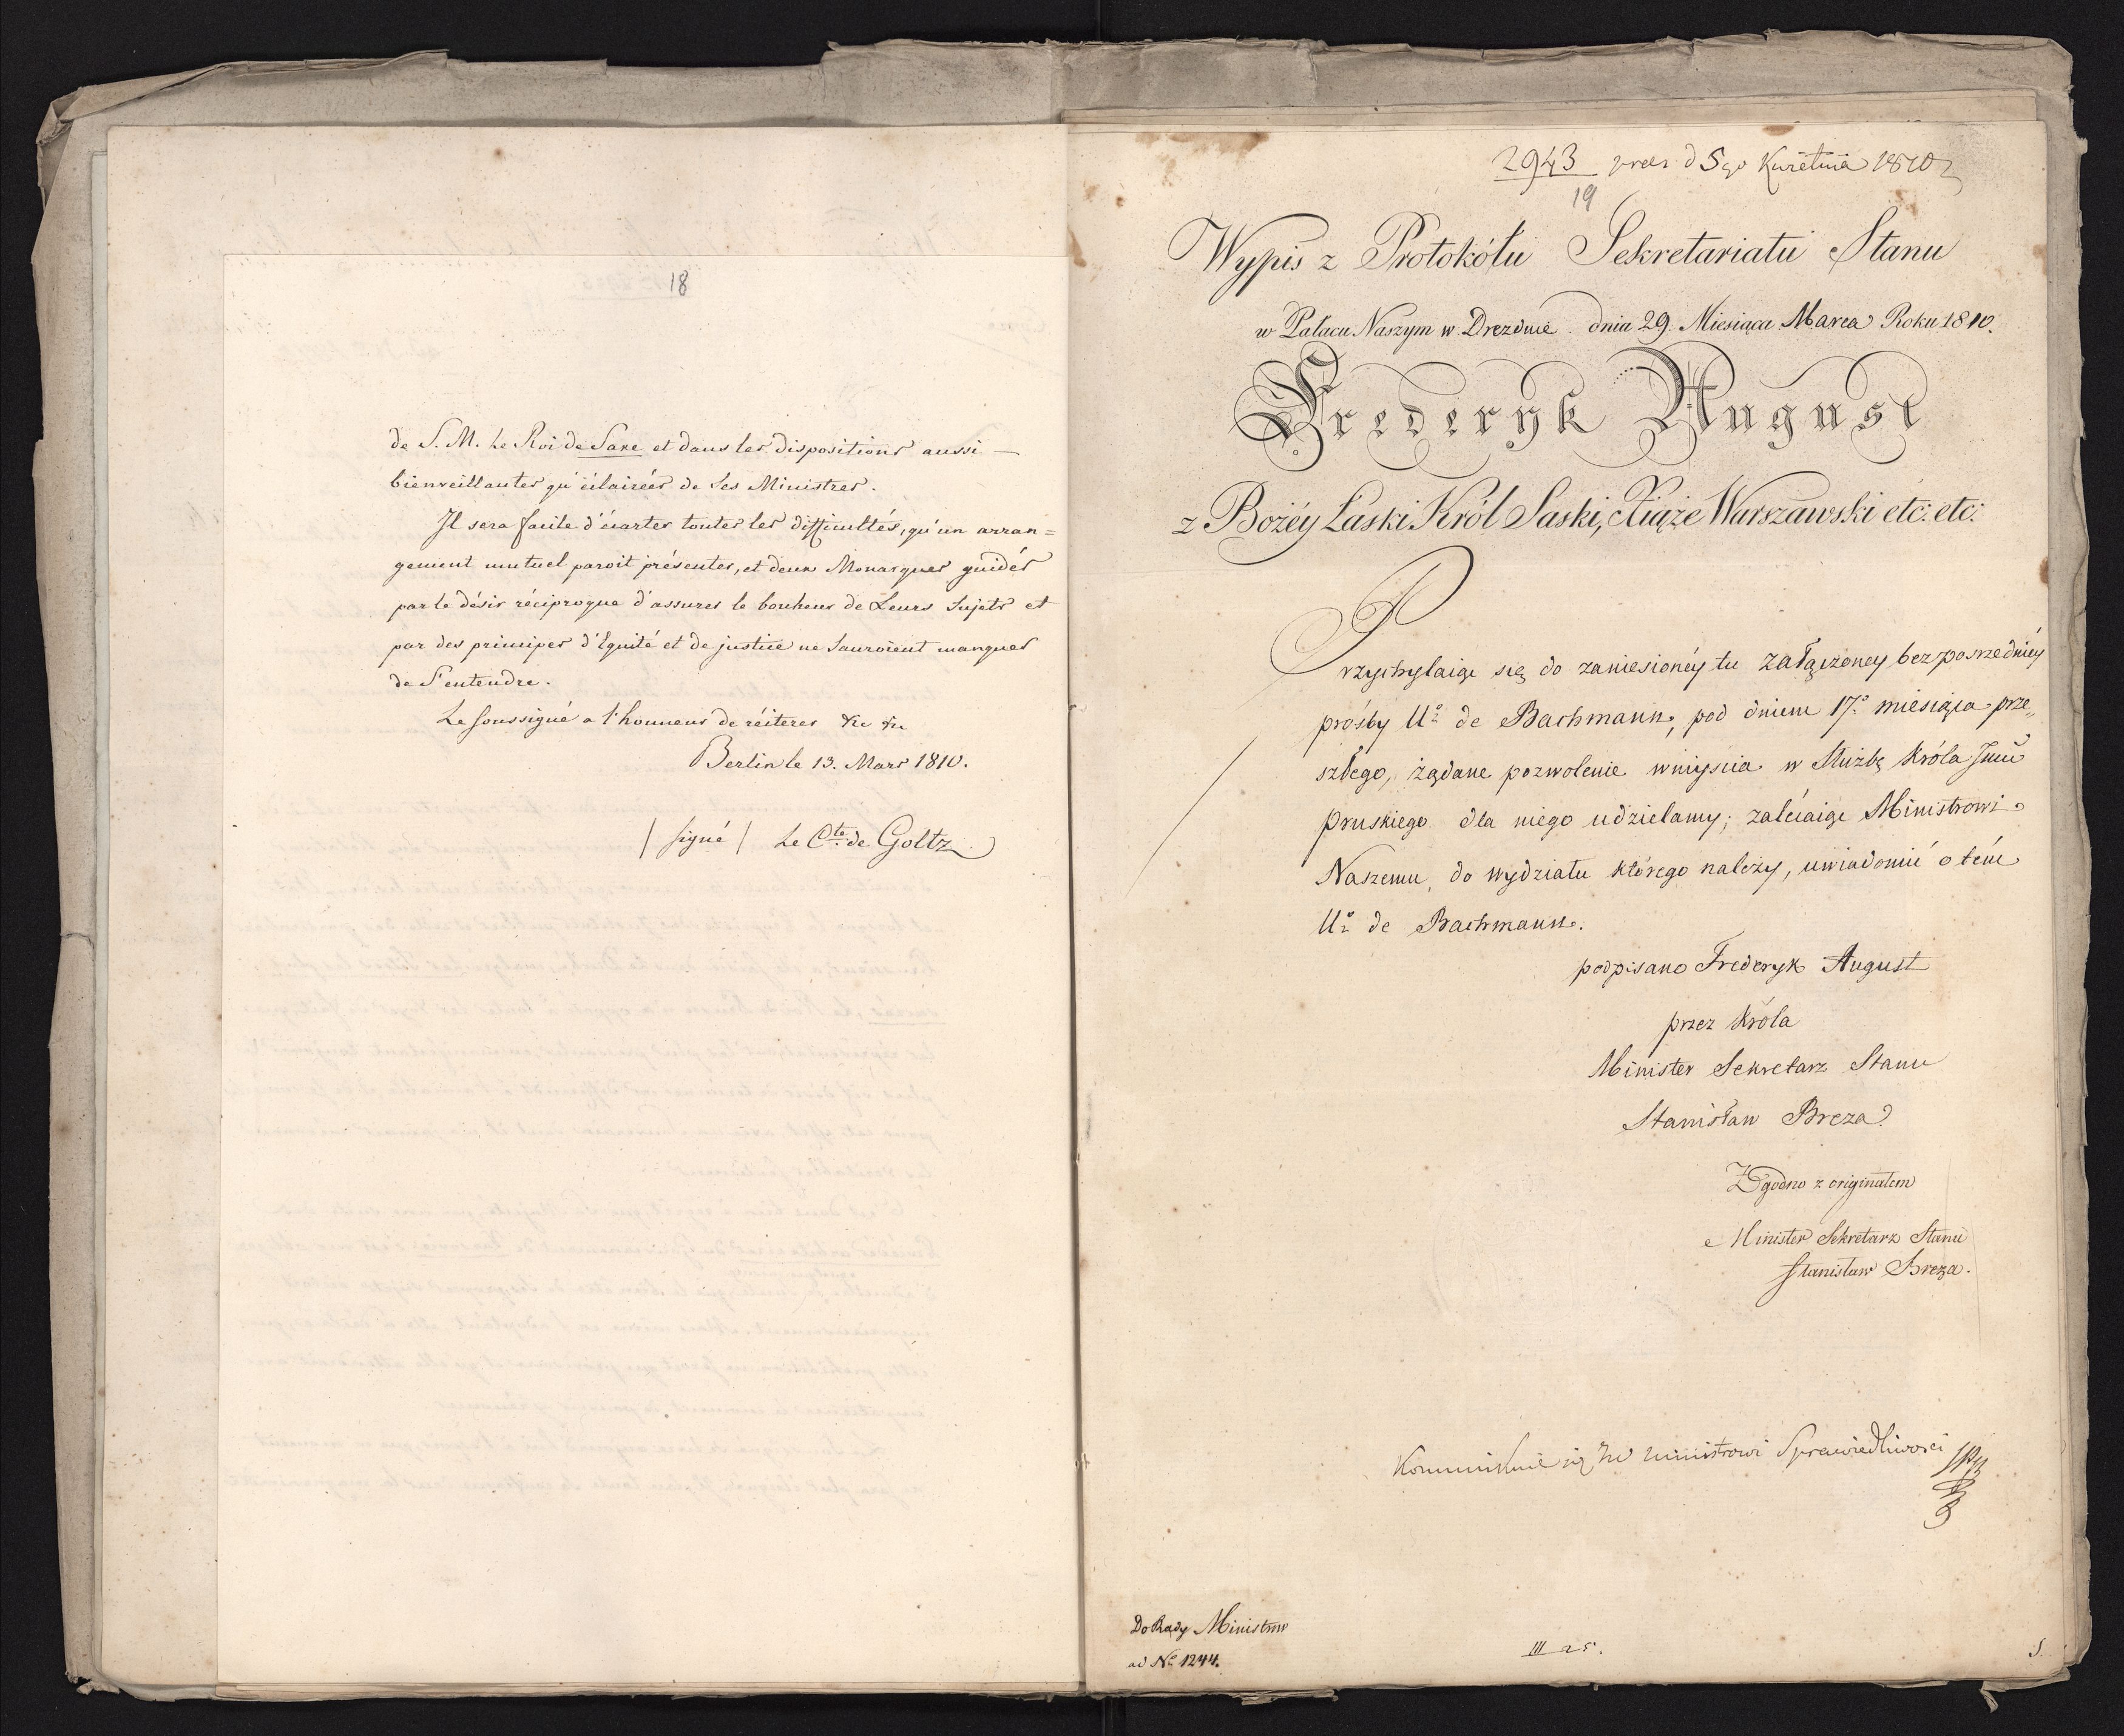 18
de S. M. Le Roi de Saxe et dans les dispositions aussi —
bienveillantes qu'éclairées de Ses Ministres.
Il sera facile d'écarter toutes les difficultés, qu'un arran=
gement mutuel paroit présenter, et deux Monarques guidés
par le désir réciproque d'assurer le bonheur de Leurs Sujets et
par des principes d'Equité et de justice ne Sauroient manquer
de S'entendre.
Le Soussigné a l'honneur de réiterer &c &c
Berlin le 13. Mars 1810.
/ signé / Le Cte. de Goltz
2943 pres d 5go Kwietnia 1810
19
Wypis z Protokółu Sekretariatu Stanu
w Pałacu Naszym w Dreznie dnia 29. Miesiąca Marca Roku 1810.
Frederyk August
z Bożéy Łaski Król Saski, Xiąże Warszawski etc: etc:
Przychylaiąc się do zaniesionéy tu załączoney bezpośrzedniéy
prośby Uo de Bachmann, pod dniem 17o miesiąca prze„
szłego, żądane pozwolenie wniyścia w Służbę Króla Jmci
pruskiego dla niego udzielamy; zalécaiąc Ministrowi
Naszemu, do wydziału którego należy, uwiadomić o tém
Uo de Bachmann.
podpisano Frederyk August
przez Króla
Minister Sekretarz Stanu
Stanisław Breza
Zgodno z originałem
Minister Sekretarz Stanu
Stanisław Breza.
się Ministrowi Sprawiedliwości
Do Rady Ministrów
ad No 1244.
III 25.